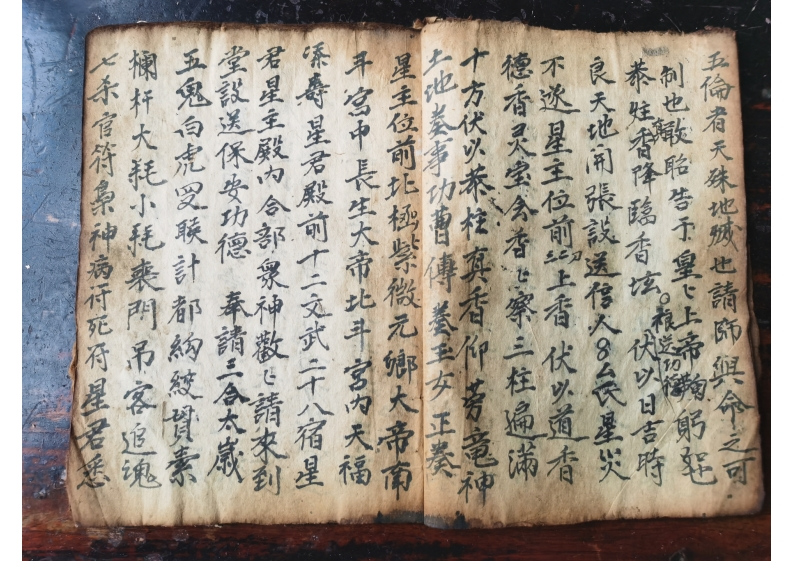 五倫者天殊地殛也請師與命之可
制也敢昭告于皇〻上帝鞠躬
恭炷香降臨香坛 伏以日吉時
良天地開張設送信人 氏星災
不遂星主位前 上香 伏以道香
德香灵宝会香〻察三柱遍滿
十方伏以恭柱真香仰 竜神
土地奏事功曹傳奏玉女正奏
星主位前北極紫微元鄉大帝南
斗宮中長生大帝北斗宮内天福
添壽星君殿前十二文武二十八宿星
君星主殿内合部衆神歡〻請來到
堂設送保安功德 奉請三合太歲
五鬼白虎 計都絞貫索
欄杆大耗小耗丧門吊客追魂
七杀官符梟神病符死符星君